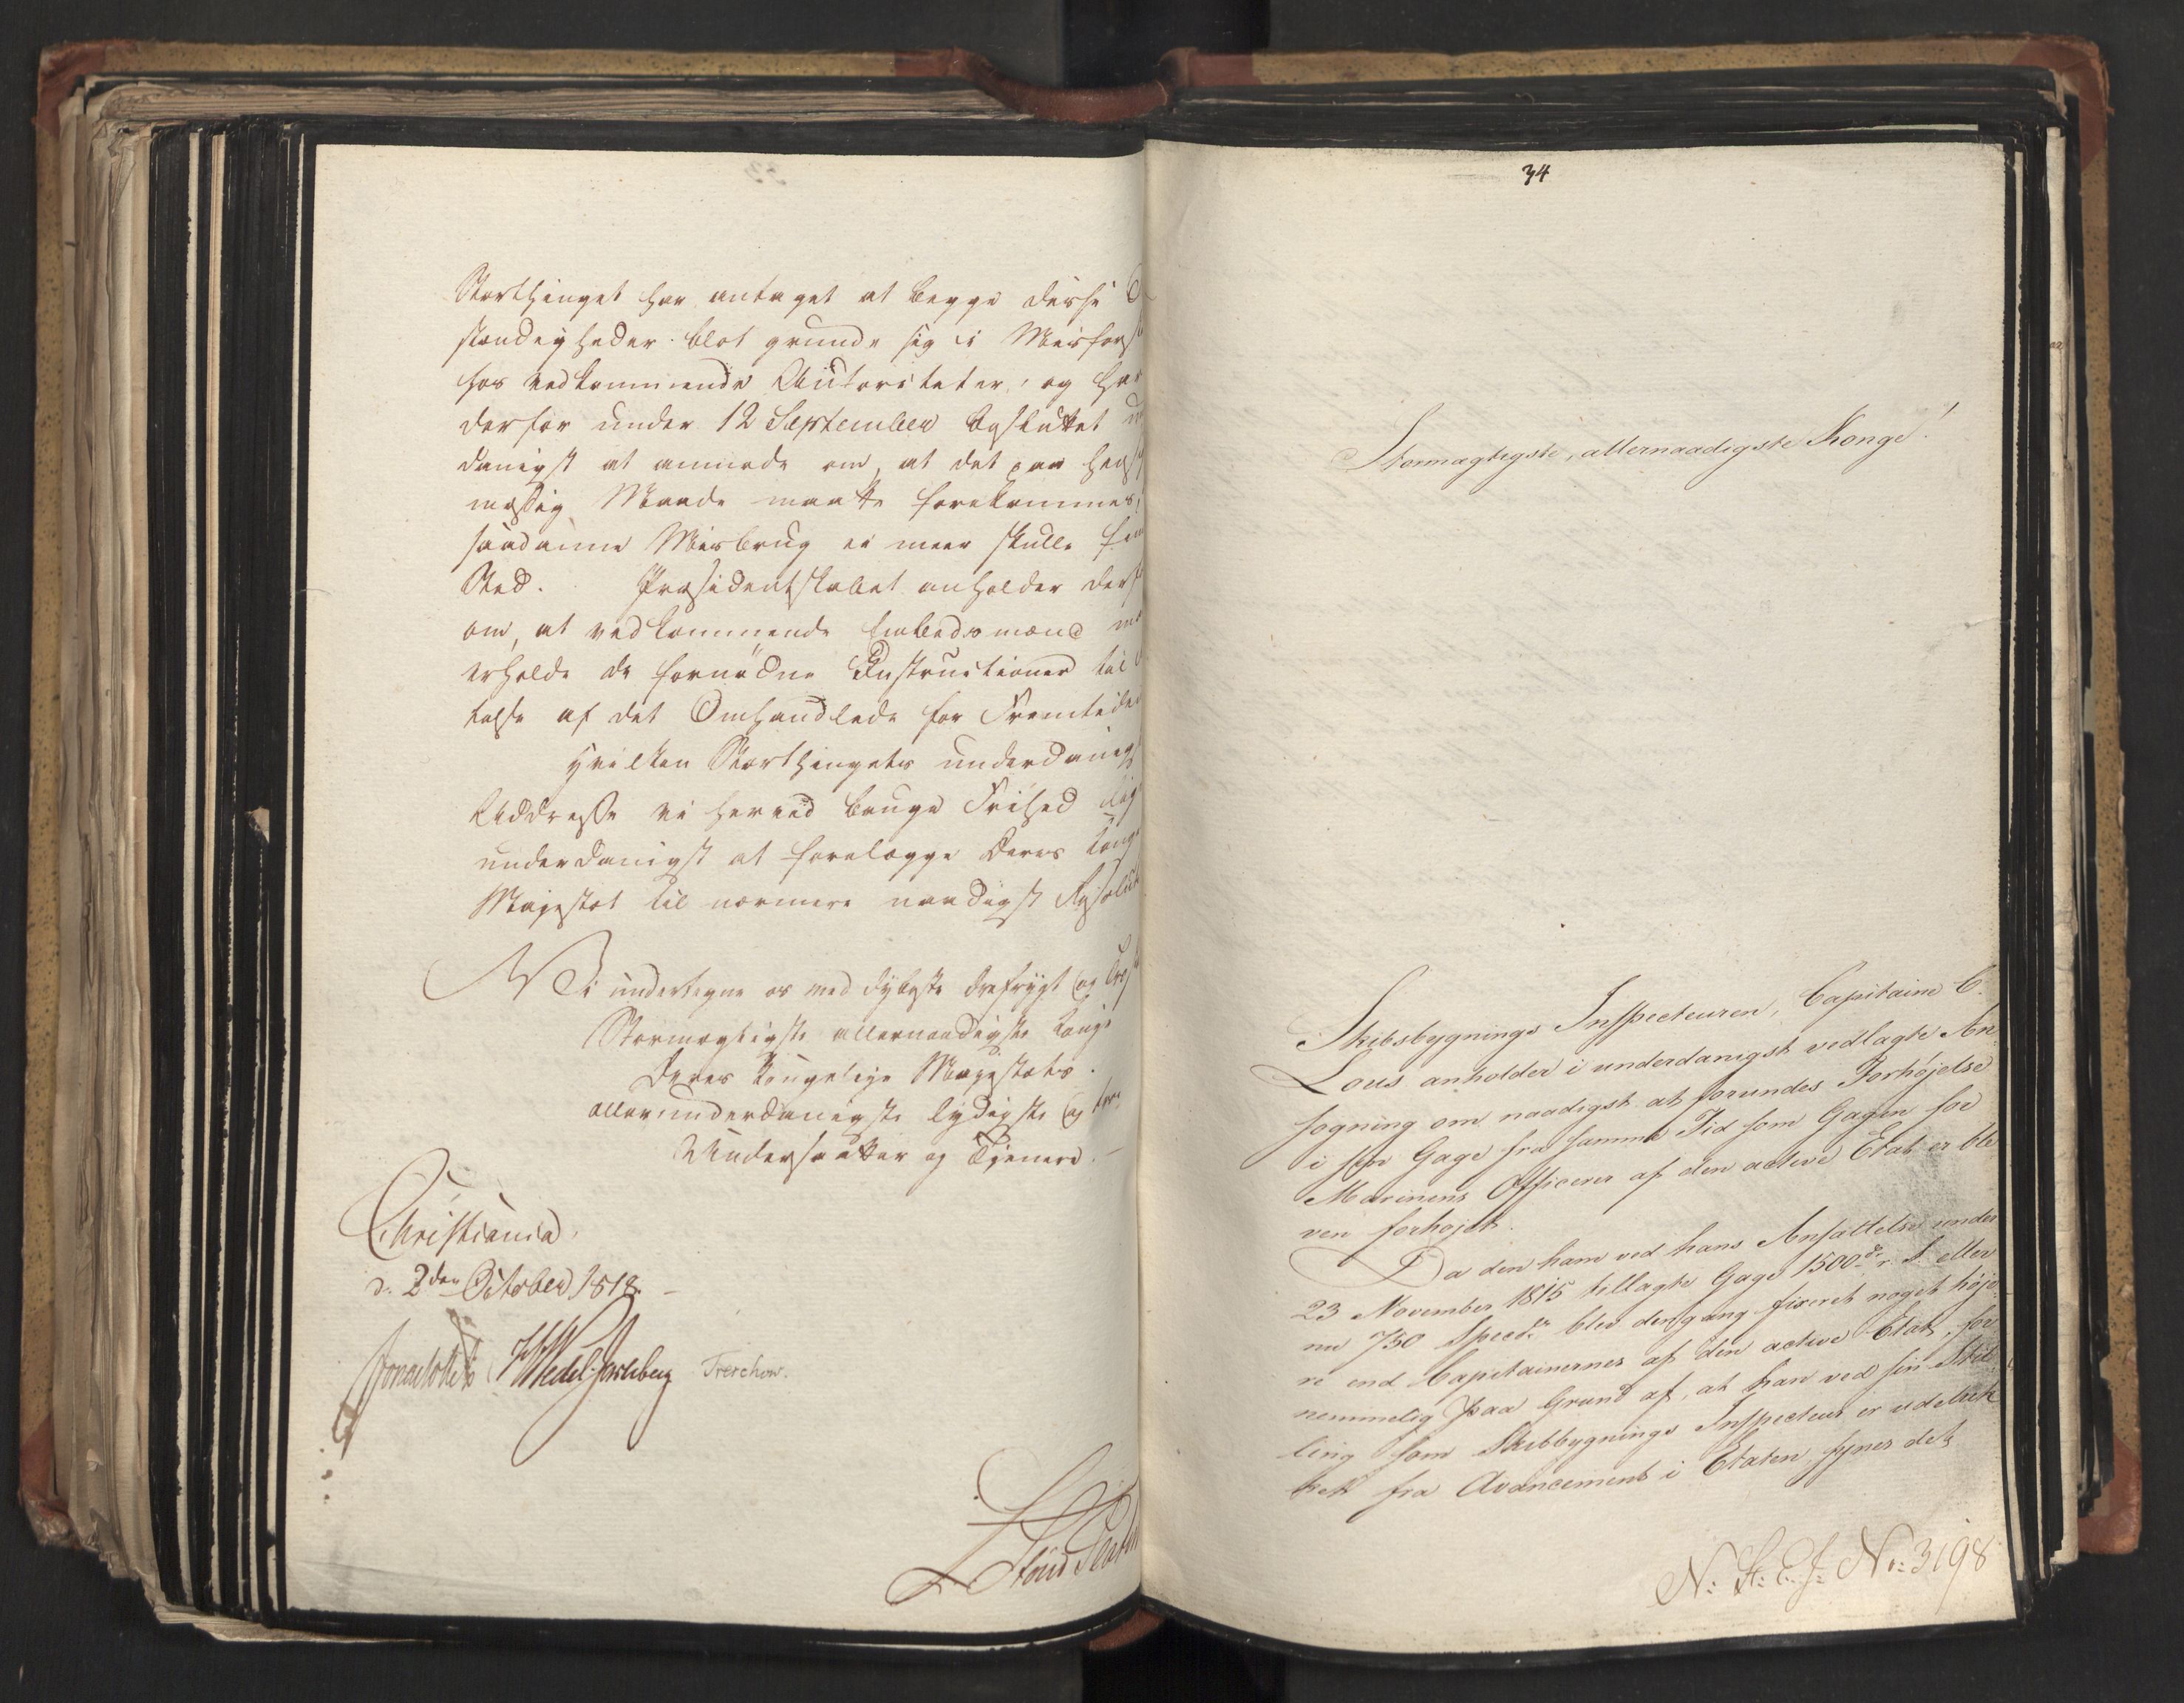 Storthinget har antaget at begge disse
stændigheder blot grunde sig i Misfors
hos vedkommende Autoriteter, og har
derfor under 12 September besluttet
danigst at anmode om, at det paa hens
mæssig Maade maatte forekommes,
saadanne Misbrug ei meer skulle
Sted. Præsidentskabet anholder derf
om, at vedkommende Embedsmænd
erholde de fornødne Instructioner til
telse af det Omhandlede for Fremtide
Hvilken Storthingets underdanigs
Addresse vi herved bruge Frihed
underdanigst at forelægge Deres Konge
Majestæt til nærmere naadigst Resolut
Vi undertegne os med dybeste Ærefrygt og
Stormægtigste allernaadigste Konge
Deres Kongelige Majestæts
allerunderdanigste lydigste og
Undersaatter og Tjenere.
Christiania,
d. 2den October 1818.
HWedel Jarlsberg Trerchow.
34
Stormægtigste, allernaadigste Konge!
Skibsbygnings Inspecteuren, Capitaine C.
Lous anholder i underdanigst vedlagte An
søgning om naadigst at forundes Forhøjelse
i sin Gage fra samme Tid som Gagen for
Marinens Officerer af den active Etat er ble
ven forhøjet.
Da den ham ved hans Ansættelse under
23 November 1815 tillagte Gage 1500 dr. r. S. eller
nu 750 Specdr. blev dengang fixeret noget høje
re end Capitainernes af den active Etat, for
nemmelig paa Grund af, at han ved sin Stil
ling som Skibbygnings Inspecteur er udeluk
ket fra Avancement i Etaten, synes det
N: St: E. J: No: 3198